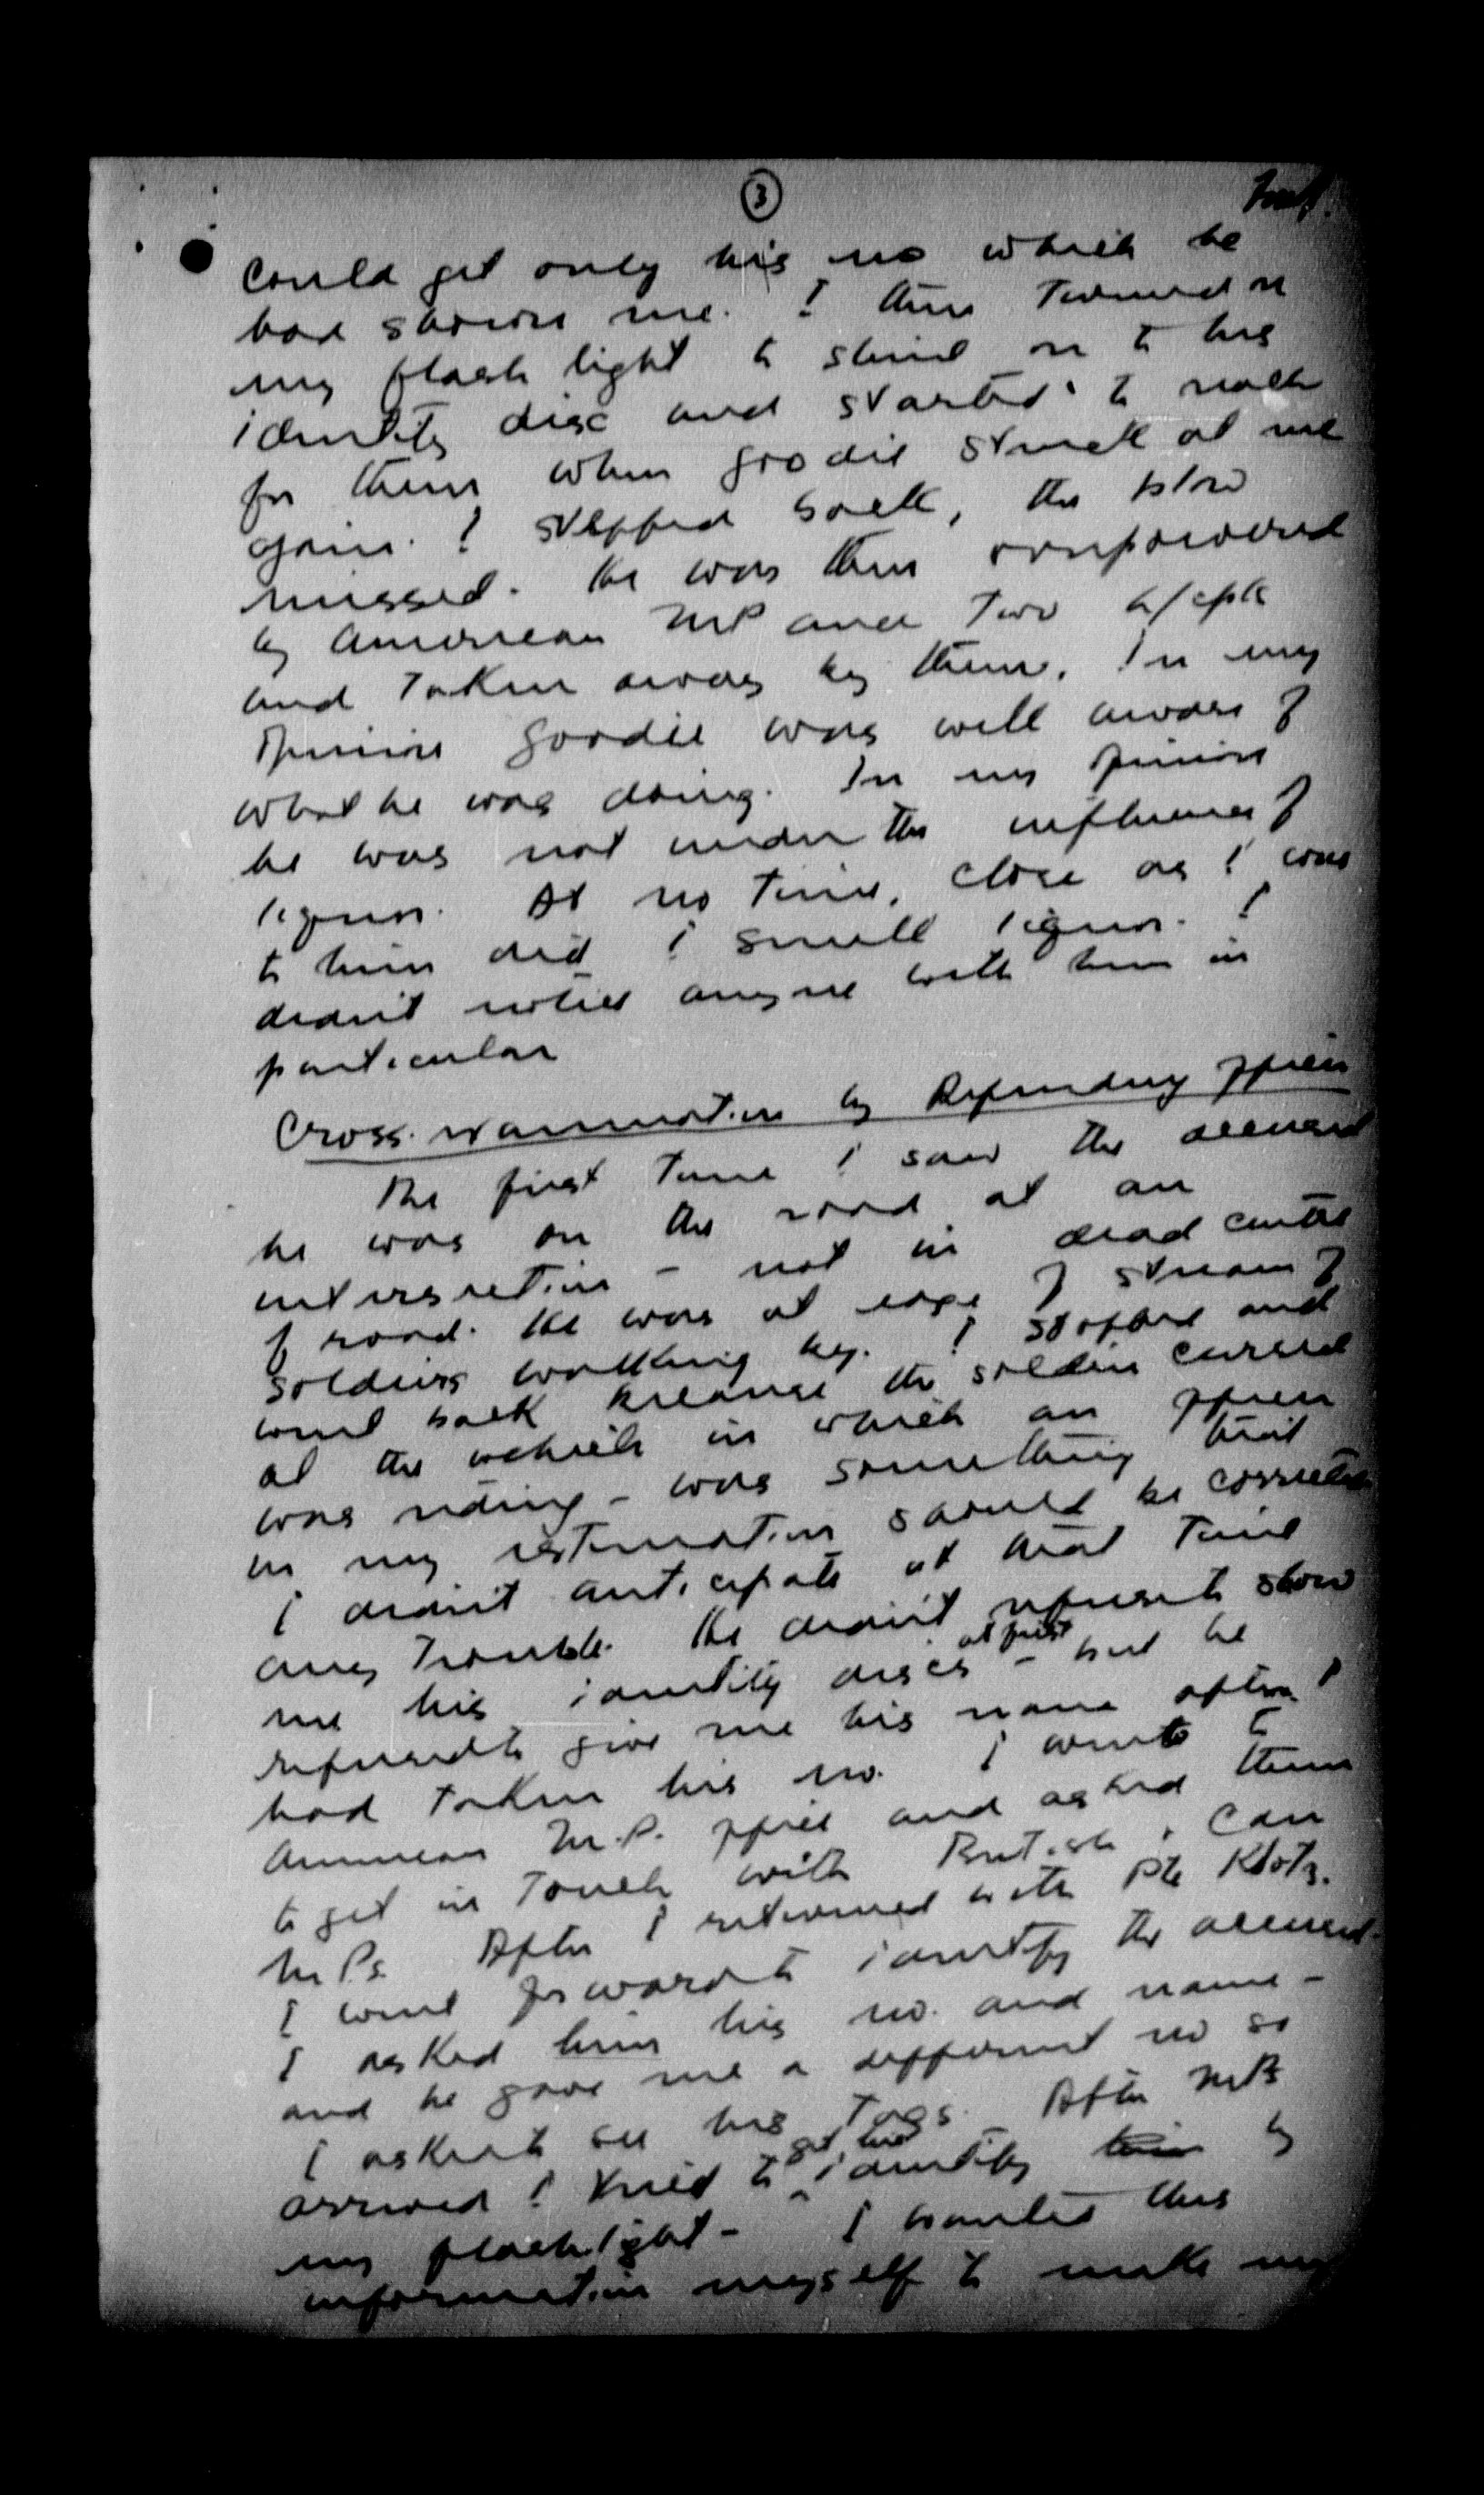 3
could get only his no which he
had shown me. I then turned on
my flash light to shine on to his
identity disc and started to reach
for them when Goodie struck at me
again. I stepped back, the blow
missed. He was then overpowered
by American MP and two L/cpls
and taken away by them. In my
opinion Goodie was well aware of
what he was doing. In my opinion
he was not under the influence of
liquor. At no time, close as I was
to him did I smell liquor. I
didn't notice anyone with him in
particular
Cross-examination by Defending Officer
The first time I saw the accused
he was on the road at an
intersection - not in dead centre
of road. He was at edge of stream of
soldiers walking by. I stopped and
went back because the soldier cursed
at the vehicle in which an officer
was riding - was something that
in my estimation should be corrected
I didn't anticipate at that time
any trouble. He didn't refuse to show
me his identity discs at first - but he
refused to give me his name after I
had taken his no. I went to
American M.P. office and asked them
to get in touch with British, Can
M.Ps. After I returned with Pte Klotz.
I went forward to identify the accused.
I asked him his no. and name -
and he gave me a different no so
I asked to see his tags. After MPs
arrived I tried to get his identity by
my flashlight - I wanted this
information myself to make my